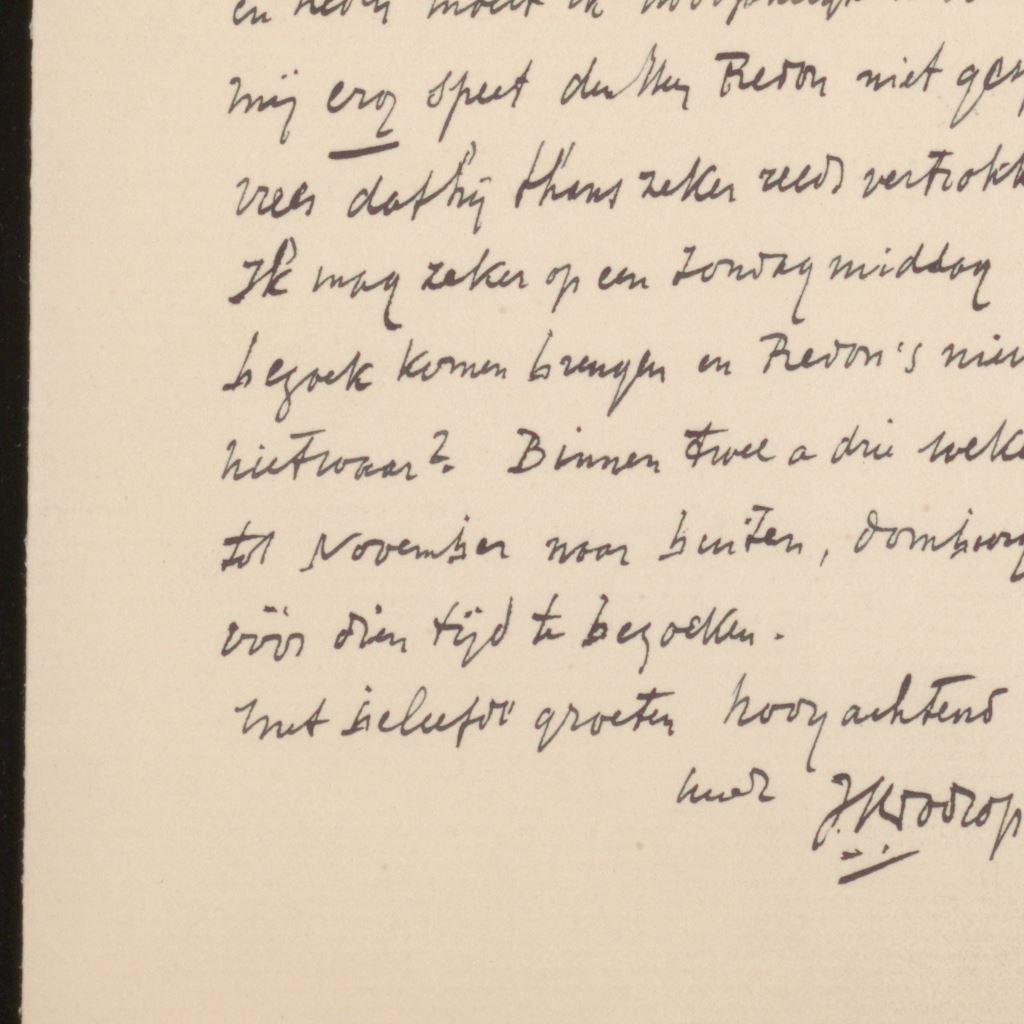 en heden moest ik
mij erg speet den Heer Redon niet ges
vrees dat hij thans zeker reeds vertrokk
Ik mag zeker op een Zondag middag
bezoek komen brengen en Redon's nieu
nietwaar? Binnen twee a drie weke
tot November naar buiten, Domburg
vóór dien tijd te bezoeken.
Met beleefde groeten hoogachtend
uwdr JThToorop